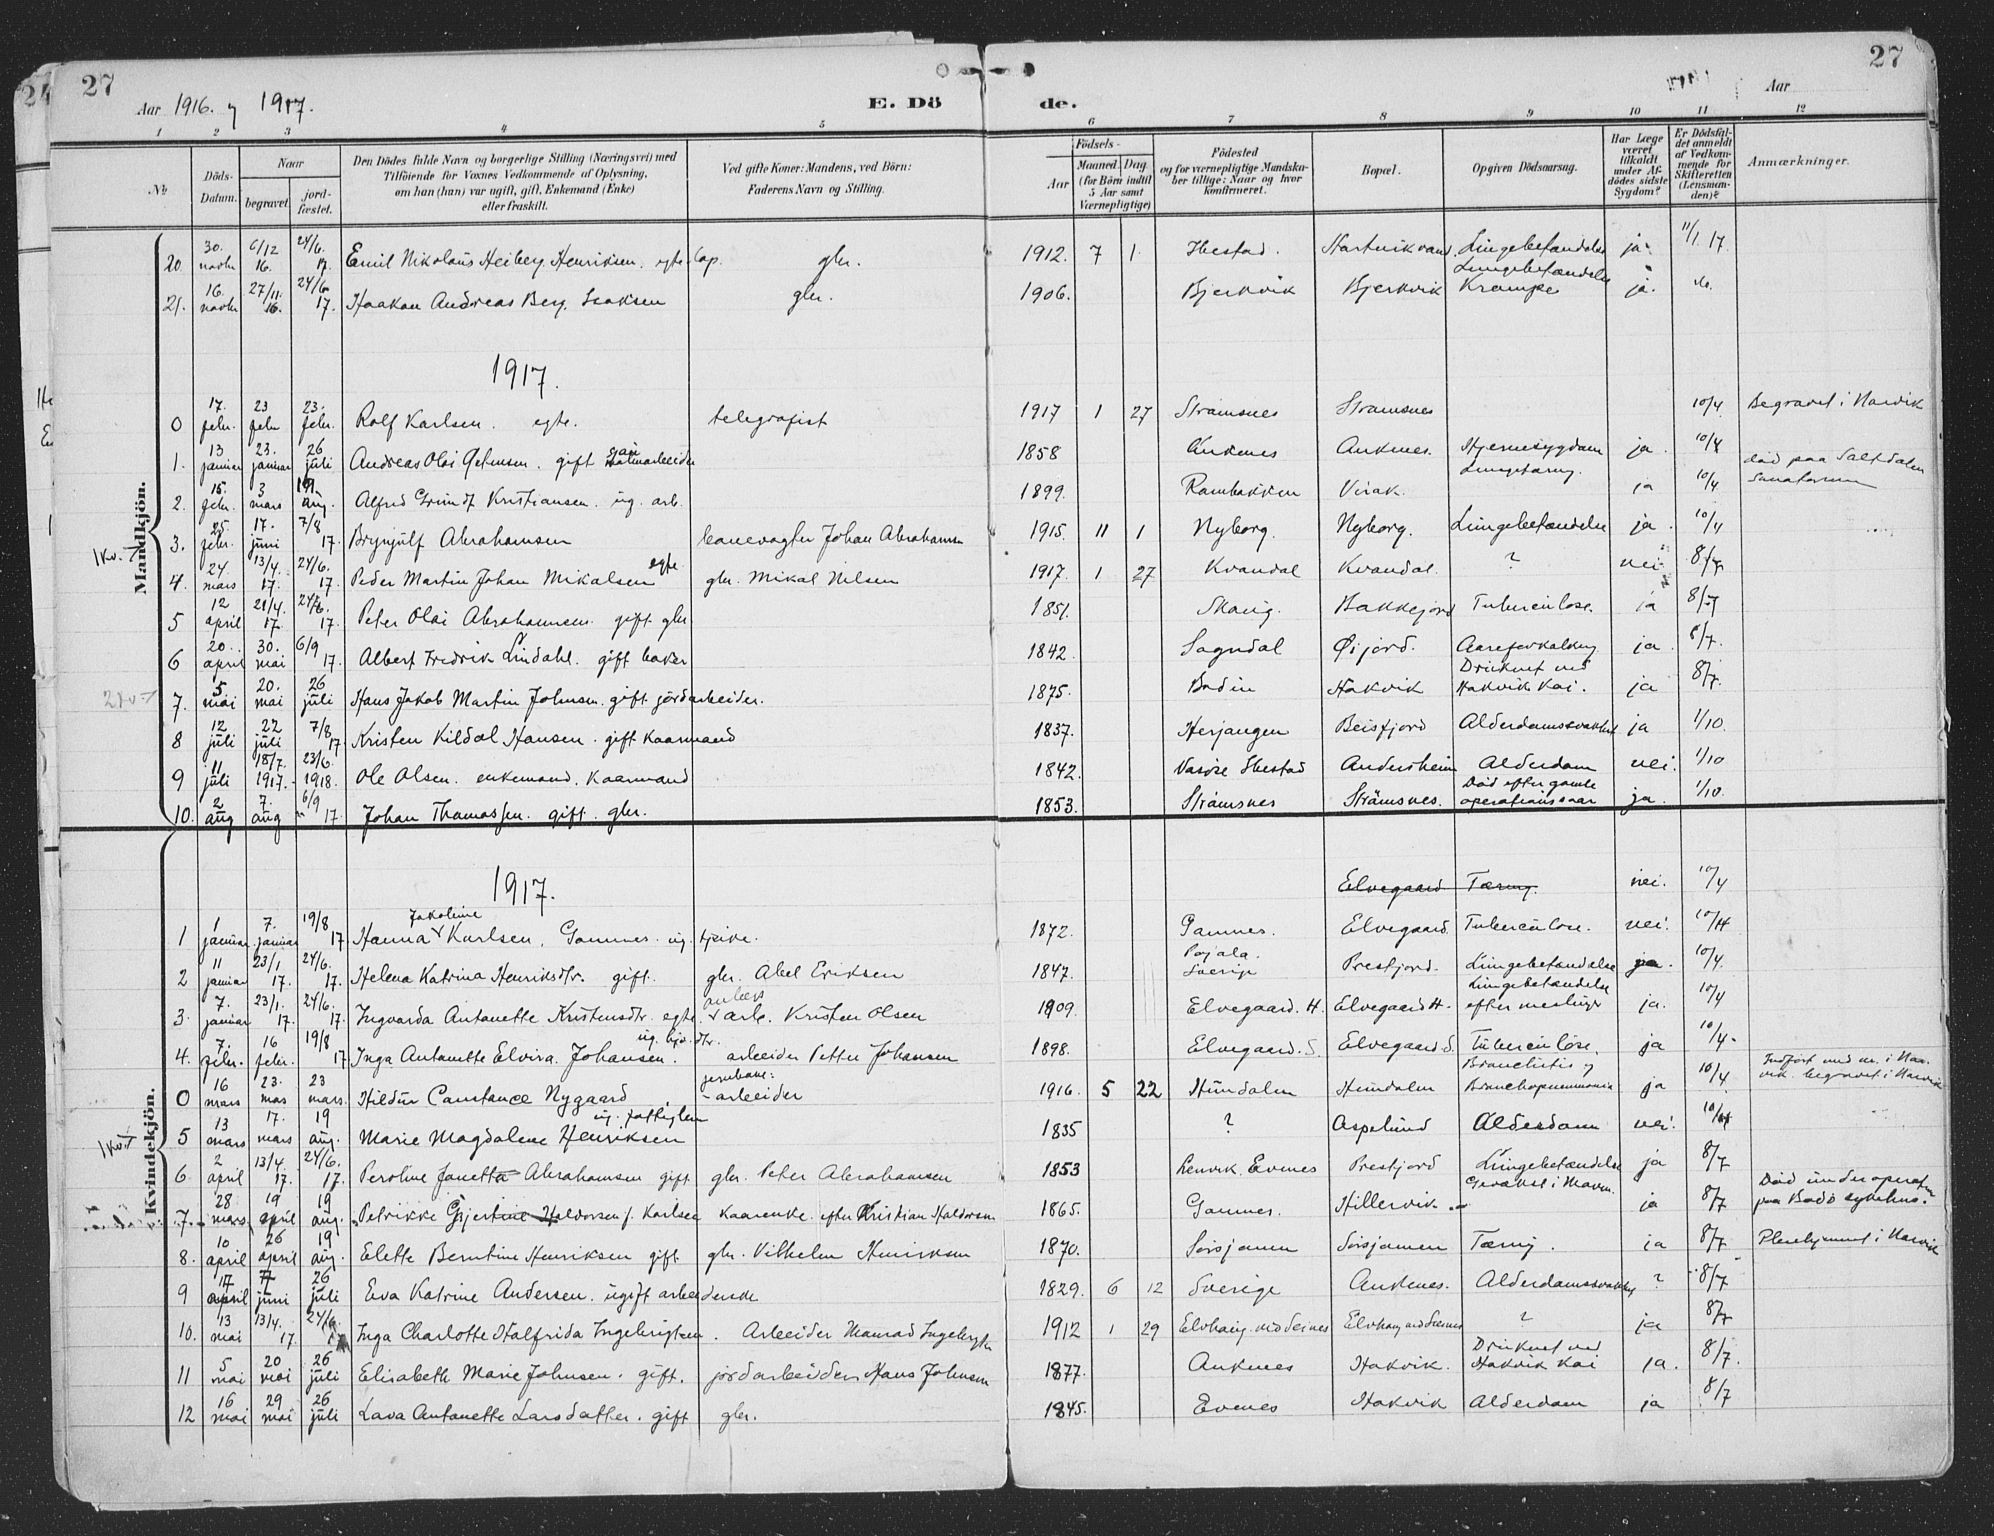 27
27
Aar 1916. og 1917.
E. Dö
de.
Aar
1 2 3 4 5 6 7 8 9 10 11 12
No
Döds-Datum.
Naar
begravet.
jord-fæstet.
Den Dödes fulde Navn og borgerlige Stilling (Næringsvei) med
Tilföiende for Voxnes Vedkommende af Oplysning,
om han (hun) var ugift, gift, Enkemand (Enke)
eller fraskilt.
Ved gifte Koner: Mandens, ved Börn:
Faderens Navn og Stilling.
Födsels-
Aar
Maaned. Dag.
(for Börn indtil
5 Aar samt
Værnepligtige)
Födested
og for værnepligtige Mandska-
ber tillige: Naar og hvor
Konfirmeret.
Bopæl.
Opgiven Dödsaarsag.
Har Læge
været
tilkaldt
under Af-
dödes sidste
Sygdom?
Er Dödsfal-
det anmeldt
af Vedkom-
mende for
Skifteretten
(Lensman-
den)?
Anmærkninger.
Mandkjön.
20. 30. novbr 6/12 16. 24/6. 17. Emil Nikolaus Heiberg Henriksen. egte lap. gbr. 1912. 7 1. Ibestad. Hartvikvand. Lungebetændelse ja. 11/1 17.
21. 16. novbr 27/11. 16. 24/6 17. Haakon Andreas Berg Isaksen gbr. 1906. Bjerkvik Bjerkvik Lungebetændelse Krampe ja. do.
1917.
0 17. febr. 23 febr 23. febr. Rolf Karlsen. egte. telegrafist 1917 1 27 Strømsnes Strømsnes 10/4 Begravet i Narvik
1. 13 januar 23. januar 26 juli Andreas Olai gift 1858 Ankenes Ankenes. Hjernesygdom ja. 10/4
2. 15. febr. 3 mars 19. aug. Alfred Kristiansen. ug. arb. 1899. Rombakken Virak. Lungetæring. ja 10/4 død paa Saltdalen Sanatorium
3. 25 febr. 17. juni 7/8 17. Brynjulf Abrahamsen banevogter Johan Abrahamsen 1915. 11 1 Nyborg. Nyborg. Lungebetændelse ja. 10/4
1 kv.
4. 24. mars 13/4. 17. 24/6. 17. Peder Martin Johan Mikalsen egte gbr. Mikal Nilsen 1917. 1 27 Kvandal Kvandal. ? nei 8/7
5 12 april 21/4. 17. 24/6. 17. Peter Olai Abrahamsen. gift gbr 1851. Skaug. Bakkejord Tuberculose. ja 8/7
6 20. april 30. mai 6/9 17. Albert Fredrik Lindahl. gift baker 1842. Sogndal Øijord. Aareforkalkning ja. 8/7.
7. 5 mai 20. mai 26 juli Hans Jakob Martin Johnsen. gift. jordarbeider. 1875. Bodin Hakvik Druknet ved Hakvik Kai. ja 8/7.
8 12 juli 22 juli 7/8 17. Kristen Kildal Hansen. gift Kaarmand 1837. Herjangen Beisfjord Alderdomssvakhet ja 1/10.
9 11 juli 18/7. 1917. 23/6. 1918. Ole Olsen. enkemand. Kaarmand 1842. Ibestad Andersheim Alderdom nei. 1/10
10. 2 aug 7. aug 6/9 17. Johan Thomassen. gift. gbr. 1853. Strømsnes Strømsnes. Død efter gamle operationssaar ja. 1/10.
Kvindekjön.
1917.
Elvegaard Tæring. nei. 10/4
1 1 januar 7. januar 19/8 17. Hanna Jakobine Karlsen. Gamnes. ug. tjener. 1872. Gamnes. Elvegaard. Tuberculose. nei. 10/4
2 11 januar 23/1 17. 24/6. 17. Helena Katrina Henriksdtr. gift. gbr. Abel Eriksen 1847. Pajala. Sverige Prestjord. Lungebetændelse ja. 10/4.
3. 7. januar 23/1. 17. 24/6. 17. Ingvarda Antonette Kristensdtr. egte. arb. Kristen Olsen 1909. Elvegaard. H. Elvegaard H. Lungebetændelse efter meslinger ja. 10/4
4. 7. febr. 16 febr. 19/8 17 Inga Antonette Elvira Johansen. ug. hjv. dtr. arbeider Petter Johansen 1898. Elvegaard. S. Elvegaard. S. Tuberculose. ja 10/4.
0 16 mars 23. mars 23 mars. Hildur Constance Nygaard jernbane: arbeider 1916. 5 22 Hundalen Hundalen Bronchitis og Bronchopneumonia ja 10/4 Indført med nr. i Narvik. begravet i Narvik
5 13 mars 17. mars 19 aug. Marie Magdalene Henriksen ug. fattiglem 1835 ? Aspelund Alderdom nei. 10/4
1 kv.
6 2 april 13/4. 17. 24/6. 17. Peroline Janetta Abrahamsen gift gbr. Peter Abrahamsen 1853 Lenvik. Evenes Prestjord Lungebetændelse ja 8/7
7. 28 mars 19 april 19 aug. Petrikke Haldorsen f. Karlsen Kaarenke. efter Kristian Haldorsen 1865. Gamnes. Hillervik. Gevækst i Maven. ja 8/7 Død under operation paa Bodø sykehus.
8. 10 april 26 april 19 aug. Elette Berntine Henriksen gift gbr. Vilhelm Henriksen 1870. Sørsjomen Sørsjomen Tæring. ja 8/7 Pleiehjemmet i Narvik
9 17 april 7 juni 26 juli Eva Katrine Andersen. ugift arbeiderske 1829. 6 12 Sverige Ankenes. Alderdomssvakhet ? 8/7
10. 13 mai 13/4. 17. 24/6 17 Inga Charlotte Halfrida Ingebrigtsen. Arbeider Konrad Ingebrigtsen 1912 1 29 Elvhaug Elvhaug ? ja 8/7
11 5 mai 20 mai 26 juli Elisabeth Marie Johnsen. gift. jordarbeider Hans Johnsen 1877. Ankenes Hakvik. Druknet ved Hakvik Kai ja. 8/7.
12 16 mai 29 mai 26 juli Lava Antonette Larsdatter. gift gbr. 1845. Evenes Hakvik Alderdom ja 8/7